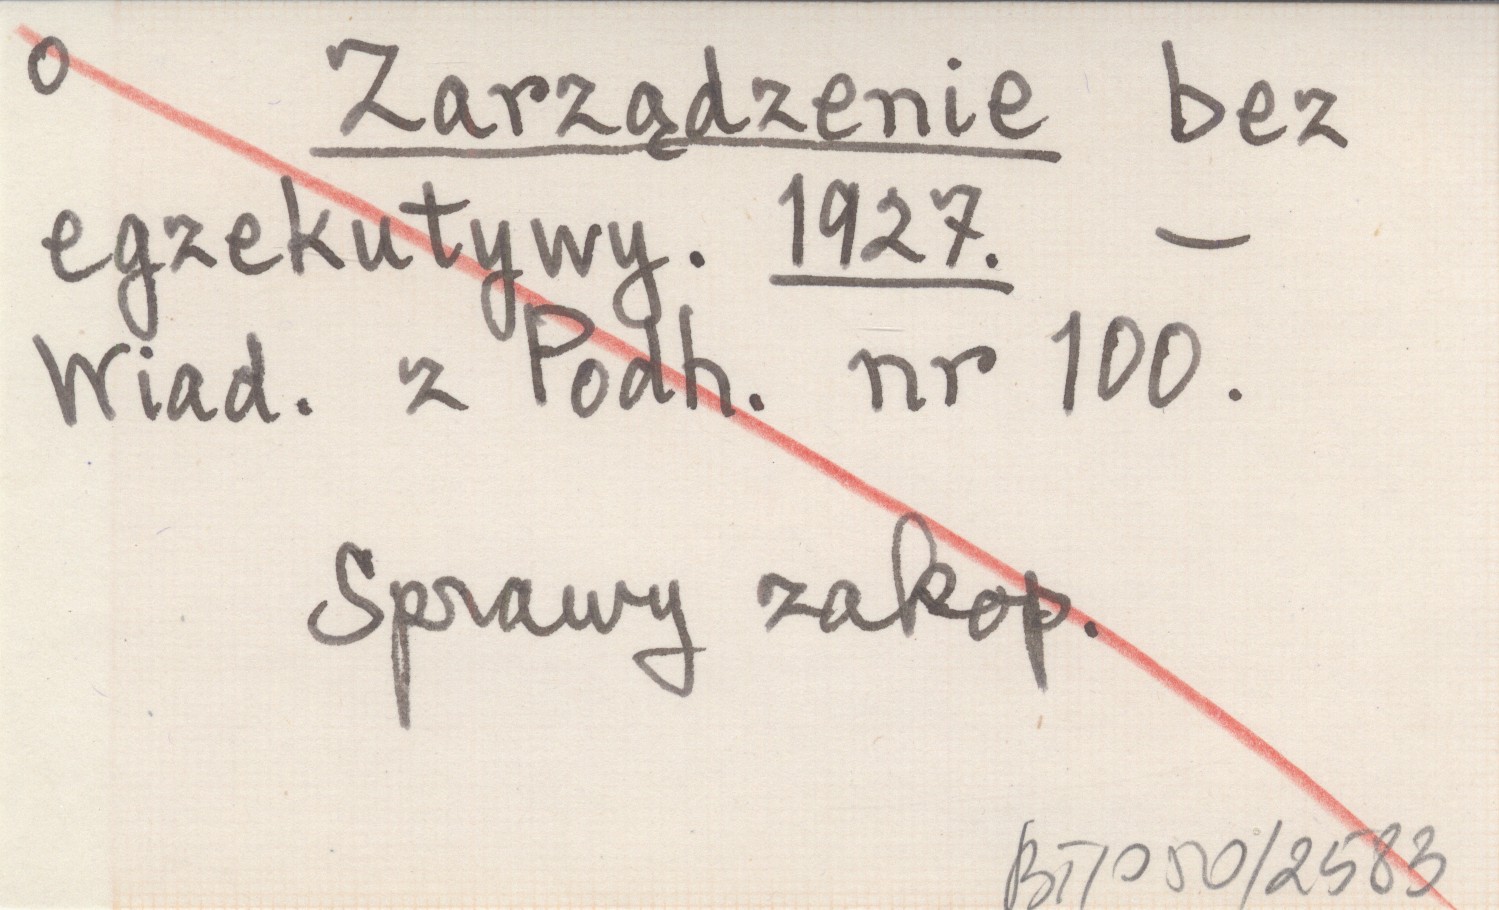 o Zarządzenie bez
egzekutywy. 1927. –
Wiad. z Podh. nr 100.
Sprawy zakop.